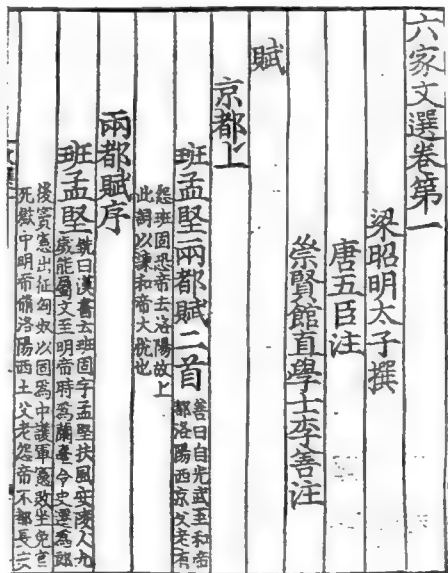 六家文選卷第一
梁昭明太子撰
唐五臣注
崇賢館直學士李善注
賦
京都上
班孟堅兩都賦二首
善曰自光武至和帝
都洛陽西京父老有
怨班固恐帝去洛陽故上
此詞以諫和帝大悅也
兩都賦序
班孟堅
銑曰漢書云班固字孟堅扶風安陵人九
歲能屬文至明帝時爲蘭臺令史遷爲郎
後竇憲出征匈奴以固爲中護軍憲敗坐免官
死獄中明帝脩洛陽西土父老怨帝不都長安